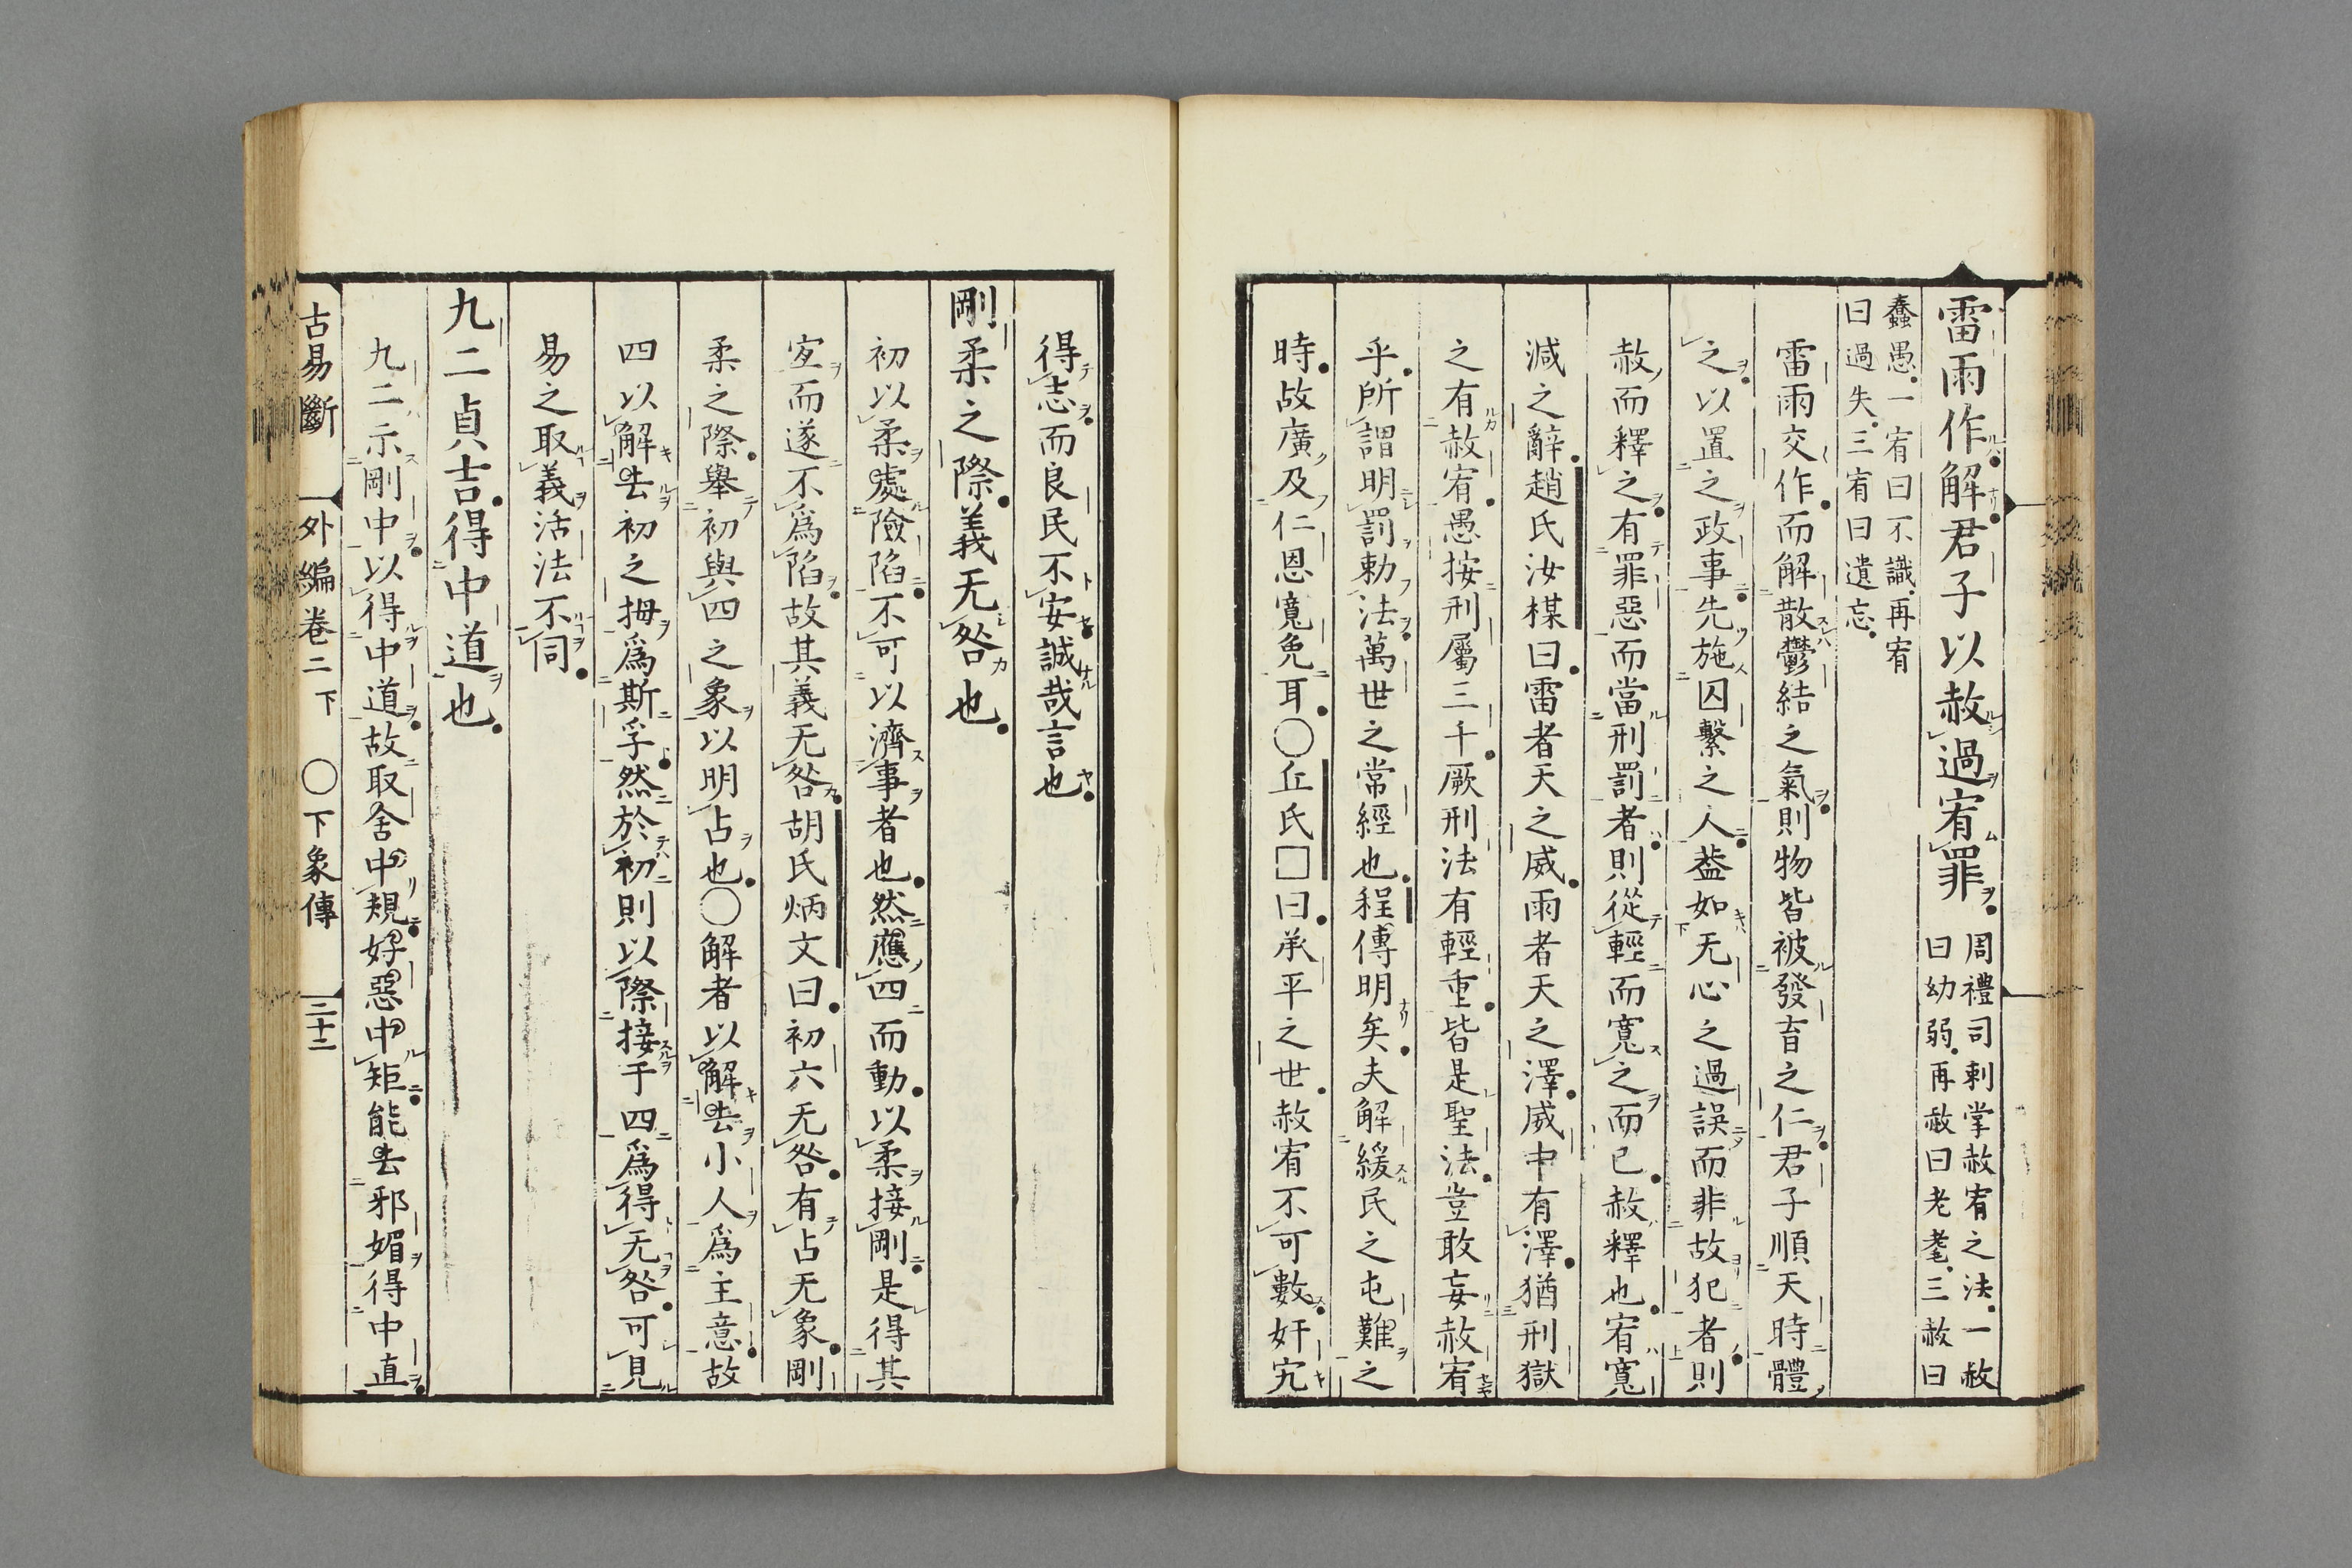 雷雨作解君子以赦過宥罪周禮司刺掌赦宥之法一赦
曰幼弱再赦曰老耄三赦曰
蠢愚一宥曰不識再宥
曰過失三宥曰遺忘
雷雨交作而解散鬱結之氣則物皆被發育之仁君子順天時體
之以置之政事先施囚繫之人葢如无心之過誤而非故犯者則
赦而釋之有罪惡而當刑罰者則從輕而寬之而已赦釋也宥寬
減之辭趙氏汝楳曰雷者天之威雨者天之澤威中有澤猶刑獄
之有赦宥愚按刑屬三千厥刑法有輕重皆是聖法豈敢妄赦宥
乎所謂明罰勅法萬世之常經也程傳明矣夫解緩民之屯難之
時故廣及仁恩寬免耳○丘氏□曰承平之世赦宥不可數奸宄
得志而良民不安誠哉言也
剛柔之際義无咎也
初以柔處險陷不可以濟事者也然應四而動以柔接剛是得其
宐而遂不爲陷故其義无咎胡氏炳文曰初六无咎有占无象剛
柔之際舉初與四之象以明占也○解者以解去小人爲主意故
四以解去初之拇爲斯孚然於初則以際接于四爲得无咎可見
易之取義活法不同
九二貞吉得中道也
九二示剛中以得中道故取舍中規好惡中矩能去邪媚得中直
古易斷 外編卷二下 ○下象傳 二十二